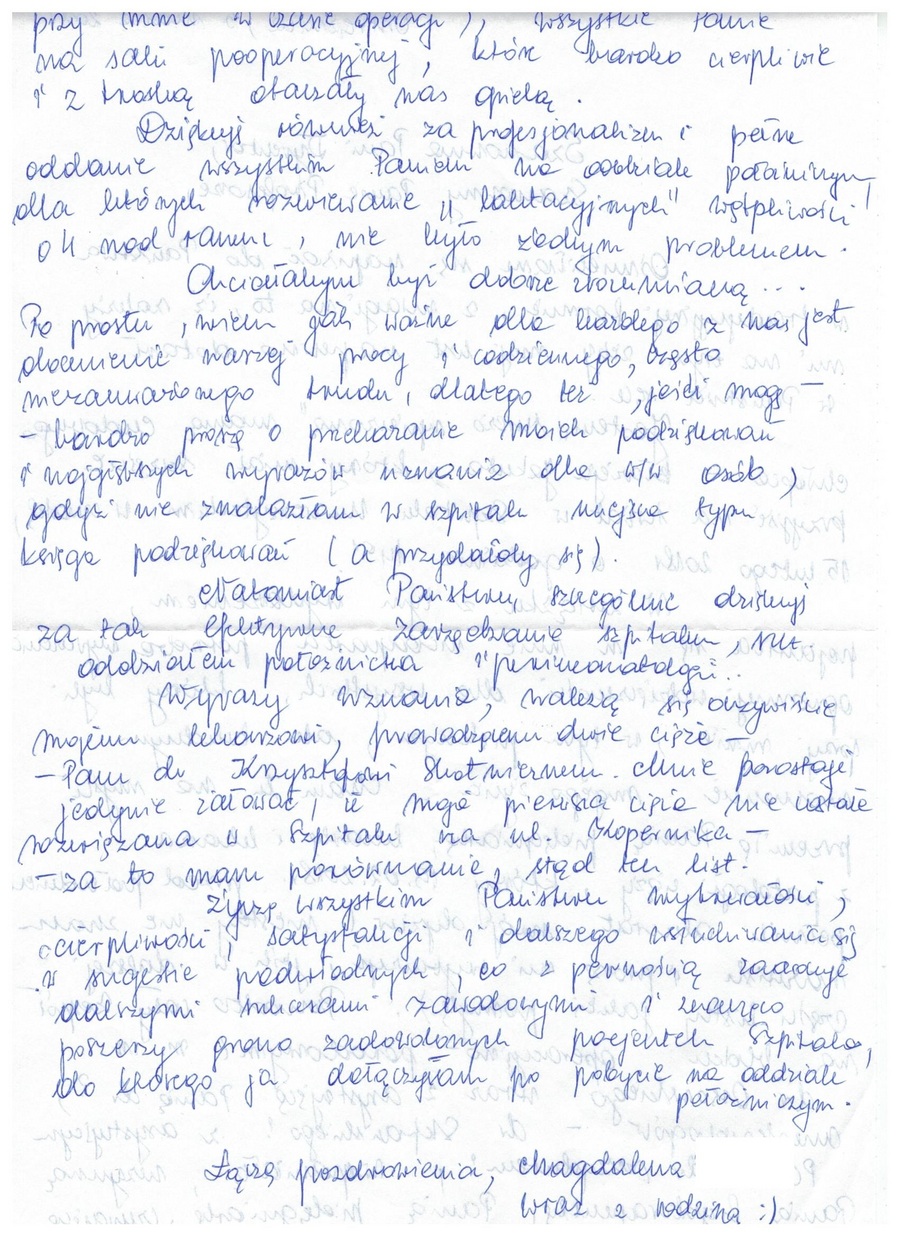 przy mnie w czasie operacji), wszystkie Panie
na sali pooperacyjnej, które bardzo cierpliwie
i z troską otaczały nas opieką.
Dziękuję również za profesjonalizm i pełne
oddanie wszystkim Paniom na oddziale położniczym,
dla których rozwiewanie „laktacyjnych" wątpliwości
o 4 nad ranem, nie było żadnym problemem.
Chciałabym być dobrze zrozumianą...
Po prostu, wiem jak ważne dla każdego z nas jest
docenienie naszej pracy i codziennego, często
niezauważonego trudu, dlatego też, jeśli mogę –
– bardzo proszę o przekazanie moich podziękowań
i najgłębszych wyrazów uznania dla w/w osób,
gdyż nie znalazłam w szpitalu miejsca typu
księga podziękowań (a przydałoby się).
Natomiast Państwu szczególnie dziękuję
za tak efektywne zarządzanie szpitalem,
oddziałem położnictwa i perineonatologii..
Wyrazy uznania, należą się oczywiście
mojemu lekarzowi, prowadzącemu dwie ciąże –
– Panu dr Krzysztofowi Mnie pozostaje
jedynie żałować, że moja pierwsza ciąża nie została
rozwiązana w Szpitalu na ul. Kopernika –
– za to mam porównanie, stąd ten list.
Życzę wszystkim Państwu wytrwałości,
cierpliwości, satysfakcji i dalszego wsłuchiwania się
w sugestie podwładnych, co z pewnością zaowocuje
dalszymi sukcesami zawodowymi i znacząco
poszerzy grono zadowolonych pacjentek Szpitala,
do którego ja dołączyłam po pobycie na oddziale
położniczym.
Łączę pozdrowienia, Magdalena
wraz z rodziną :)